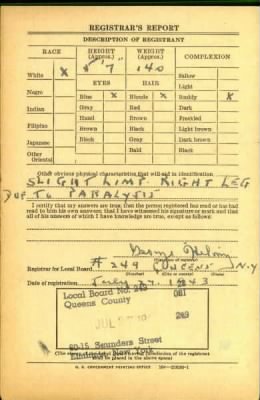 REGISTRAR'S REPORT
DESCRIPTION OF REGISTRANT
RACE HEIGHT (Approx.) WEIGHT (Approx.) COMPLEXION
5' 7" 140
White X Sallow
EYES HAIR Light
Negro Blue X Blonde X Ruddy X
Indian Gray Red Dark
Filipino Hazel Brown Freckled
Brown Black Light brown
Japanese Black Gray Dark brown
Other Oriental Bald Black
Other obvious physical characteristics that will aid in identification
SLIGHT LIMP RIGHT LEG
DUE TO PARALYSIS
I certify that my answers are true; that the person registered has read or has had
read to him his own answers; that I have witnessed his signature or mark and that
all of his answers of which I have knowledge are true, except as follows:
George
(Signature of registrar)
Registrar for Local Board # 249 QUEENS N.Y
(Number) (City or county) (State)
Date of registration July 27, 1943
Local Board No. 249
Queens County 081
249
60-15 Saunders Street
New York
(The stamp of the Local Board having jurisdiction of the registrant
shall be placed in the above space)
U. S. GOVERNMENT PRINTING OFFICE